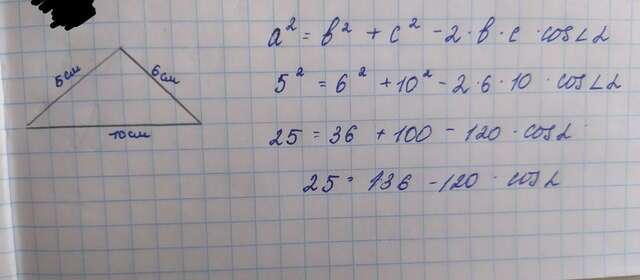 5см
6см
10см
a² = b² + c² - 2 · b · c · cos∠α
5² = 6² + 10² - 2 · 6 · 10 · cos∠α
25 = 36 + 100 - 120 · cosα
25 = 136 - 120 · cosα